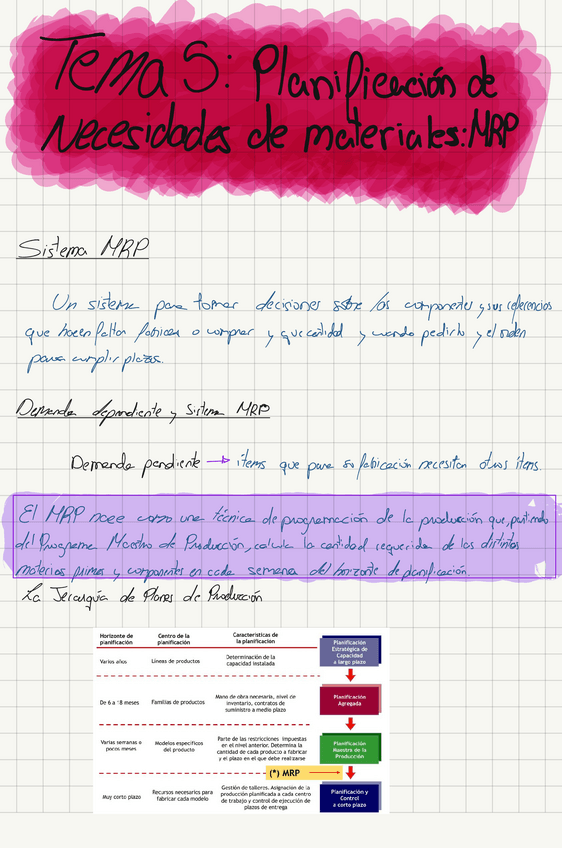 Tema 5: Planificación de
Necesidades de materiales: MRP
Sistema MRP
Un sistema para tomar decisiones sobre los componentes y sus referencias
que hacen falta fabricar o comprar y que cantidad y cuando pedirlo y el orden
para cumplir plazos.
Demanda dependiente y sistema MRP
Demanda pendiente → ítems que para su fabricación necesitan otros ítems.
El MRP nace como una técnica de programación de la producción que, partiendo
del Programa Maestro de Producción, calcula la cantidad requerida de las distintas
materias primas y componentes en cada semana del horizonte de planificación.
La Jerarquía de Planes de Producción
Horizonte de planificación Centro de la planificación Características de la planificación
Planificación Estratégica de Capacidad a largo plazo
Varios años Líneas de productos Determinación de la capacidad instalada
De 6 a 18 meses Familias de productos Mano de obra necesaria, nivel de inventario, contratos de suministro a medio plazo Planificación Agregada
Varias semanas o pocos meses Modelos específicos del producto Parte de las restricciones impuestas en el nivel anterior. Determina la cantidad de cada producto a fabricar y el plazo en el que debe realizarse Planificación Maestra de la Producción
(*) MRP
Muy corto plazo Recursos necesarios para fabricar cada modelo Gestión de talleres. Asignación de la producción planificada a cada centro de trabajo y control de ejecución de plazos de entrega Planificación y Control a corto plazo